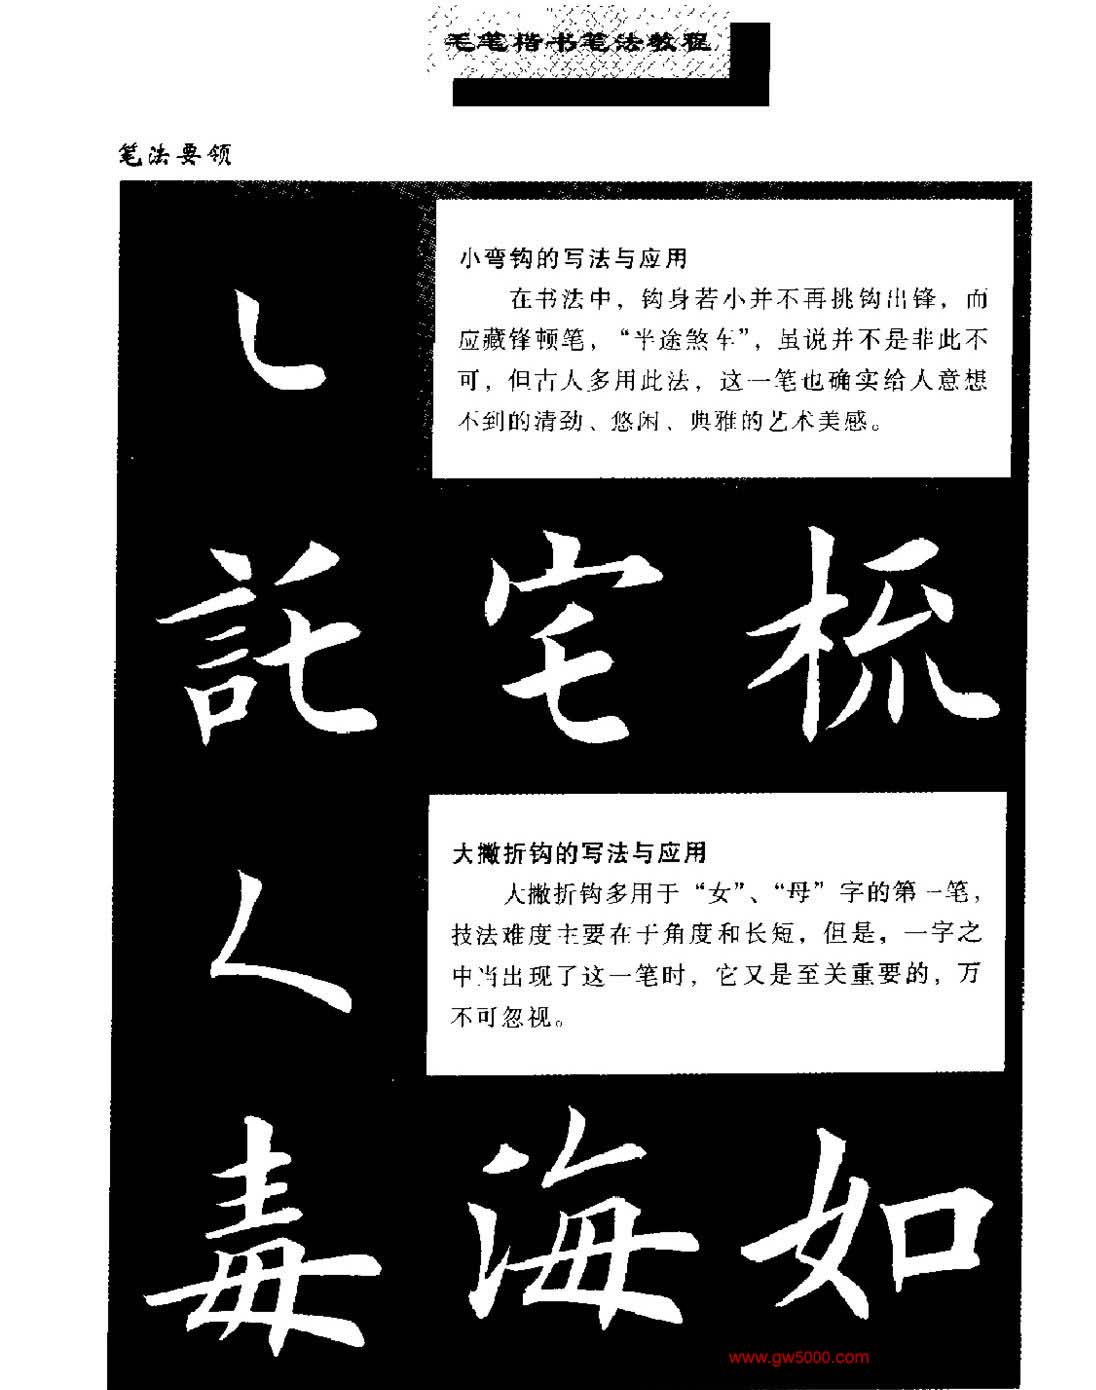 毛笔楷书笔法教程
笔法要领
小弯钩的写法与应用
在书法中，钩身若小并不再挑钩出锋，而
应藏锋顿笔，“半途煞车”，虽说并不是非此不
可，但古人多用此法，这一笔也确实给人意想
不到的清劲、悠闲、典雅的艺术美感。
託 宅 梳
大撇折钩的写法与应用
大撇折钩多用于“女”、“母”字的第一笔，
技法难度主要在于角度和长短，但是，一字之
中当出现了这一笔时，它又是至关重要的，万
不可忽视。
毒 海 如
www.gw5000.com